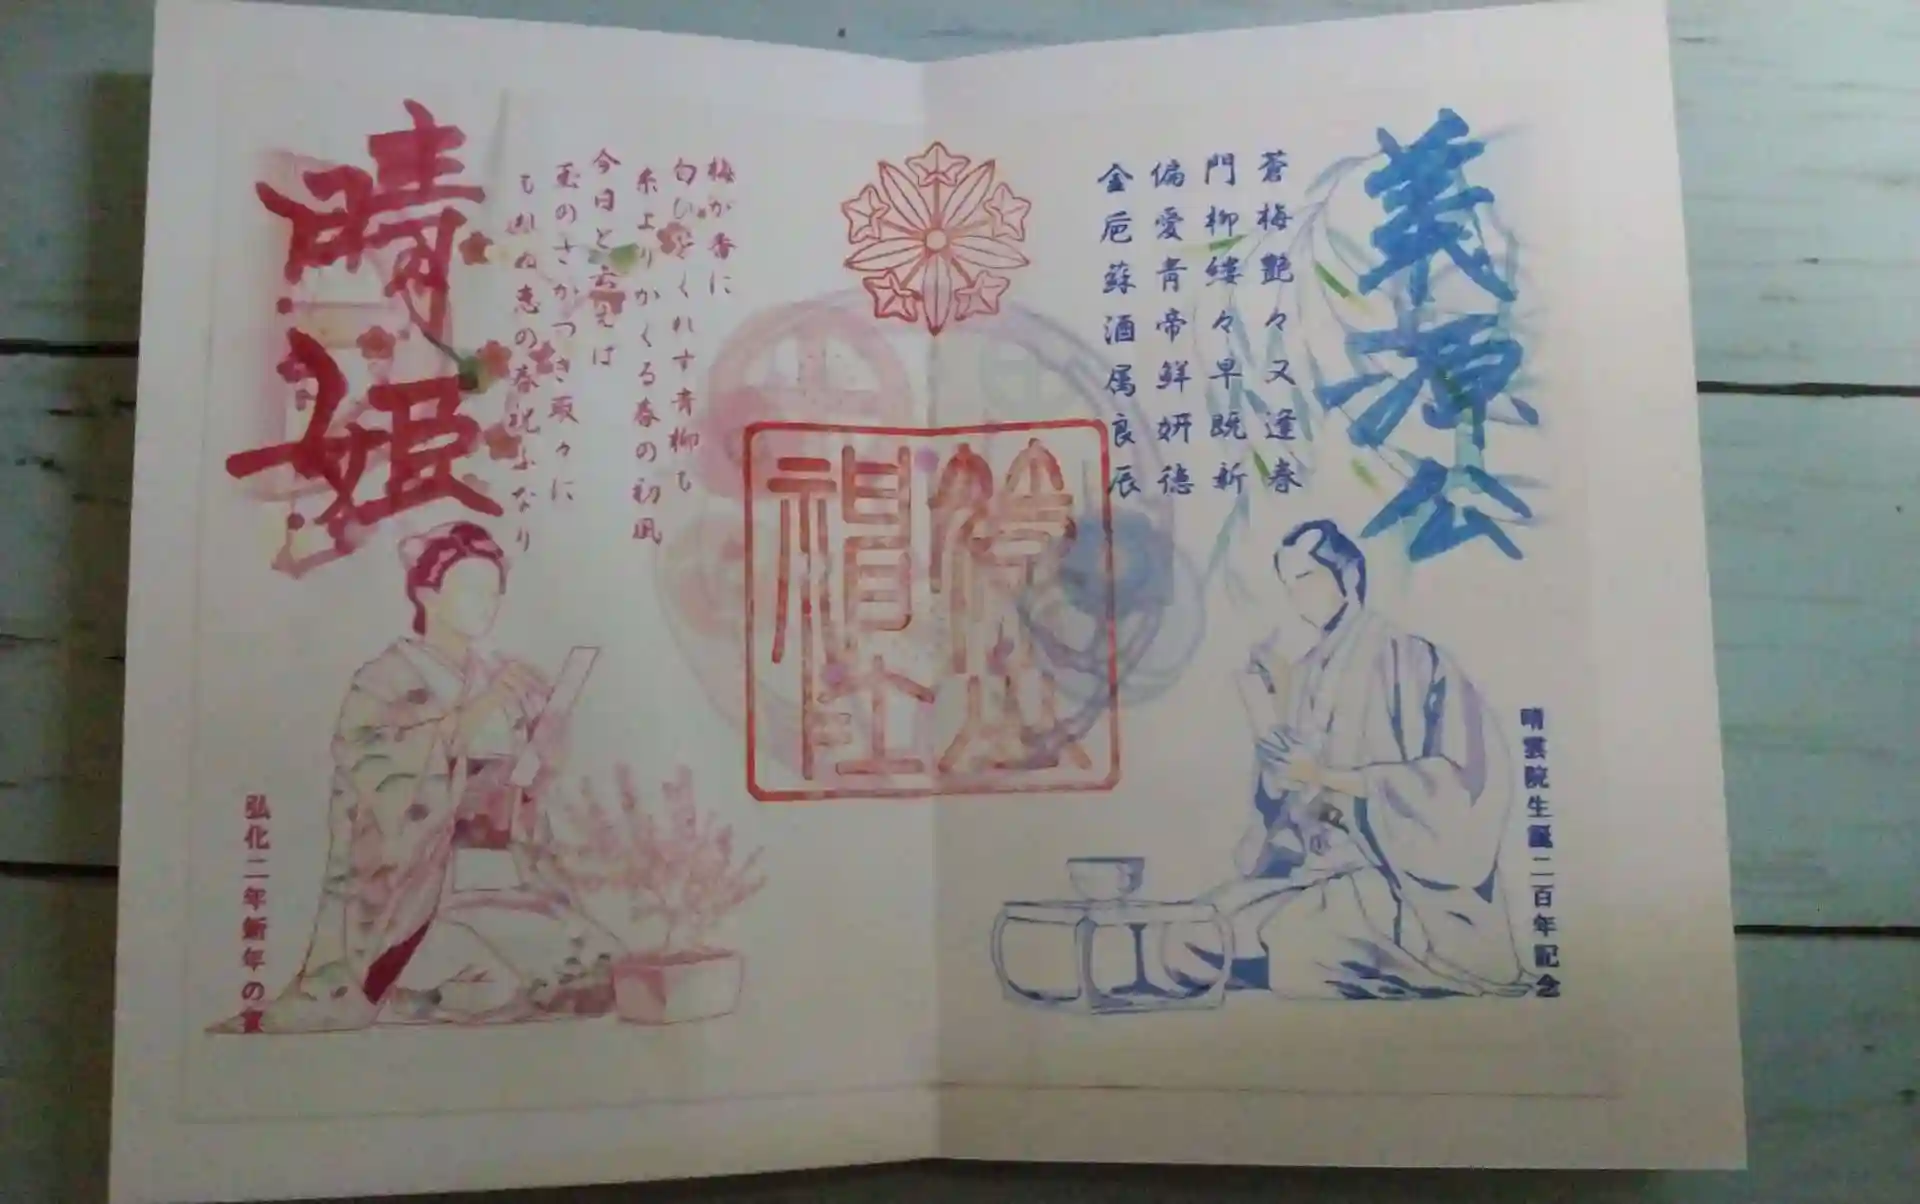 義源公
蒼梅艶々又逢春
門柳縷々早既新
偏愛青帝鮮妍徳
金巵蘇酒属良辰
晴雲院生誕二百年記念
祖社
梅が香に
匂ひおくれす青柳も
糸よりかくる春の初風
今日と云えは
玉のさかつき取々に
もれぬ恵の春祝ふなり
晴姫
弘化二年新年の宴